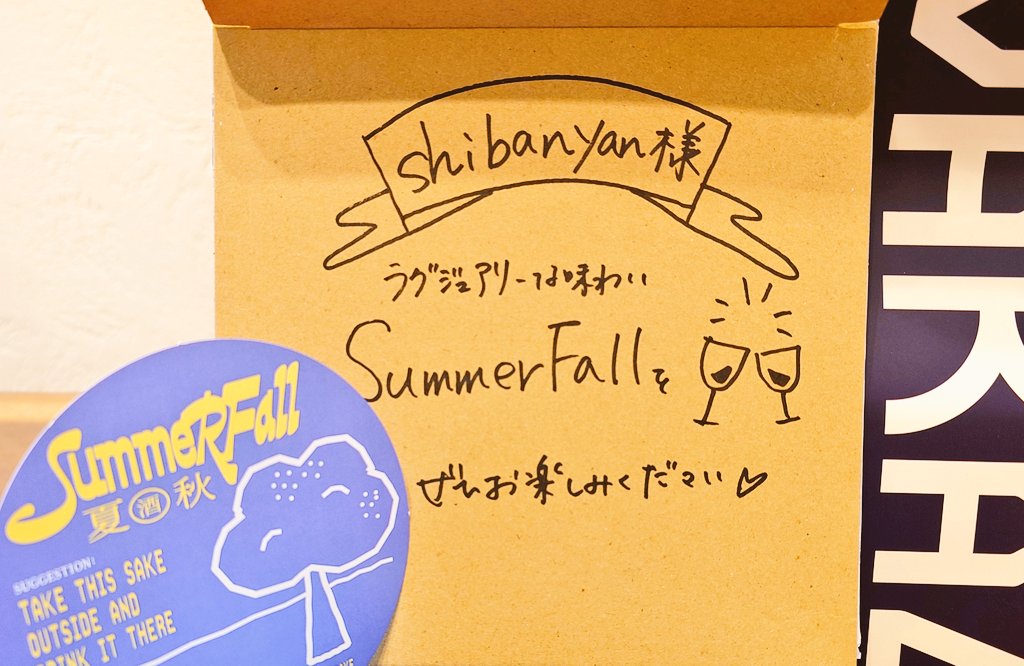 shibanyan様
ラグジュアリーな味わい
SummerFallを
ぜひお楽しみください♡
SummeRFall
夏酒秋
SUGGESTION:
TAKE THIS SAKE
OUTSIDE AND
DRINK IT THERE